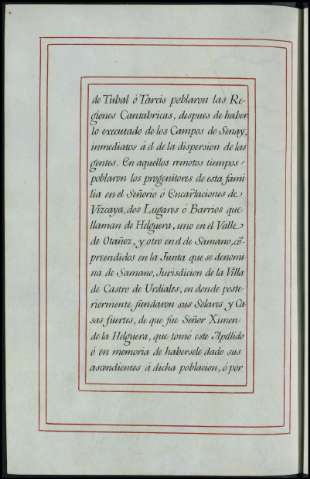 de Tubal ó Tarsis poblaron las Re-
giones Cantabricas, despues de haber
lo executado de los Campos de Senay,
inmediatos á el de la dispersion de las
gentes. En aquellos remotos tiempos
poblaron los progenitores de esta fami
lia en el Señorio ó Encartaciones de
Vizcaya, dos Lugares ó Barrios que
llaman de Helguera, uno en el Valle
de Otañez, y otro en el de Samano, cō
preendidos en la Junta que se denomi
na de Samano, Jurisdicion de la Villa
de Castro de Urdiales, en donde poste
riormente fundaron sus Solares y Ca
sas fuertes, de que fue Señor Ximen
de la Helguera, que tomó este Apellido
ó en memoria de habersele dado sus
ascendientes á dicha poblacion, ó por